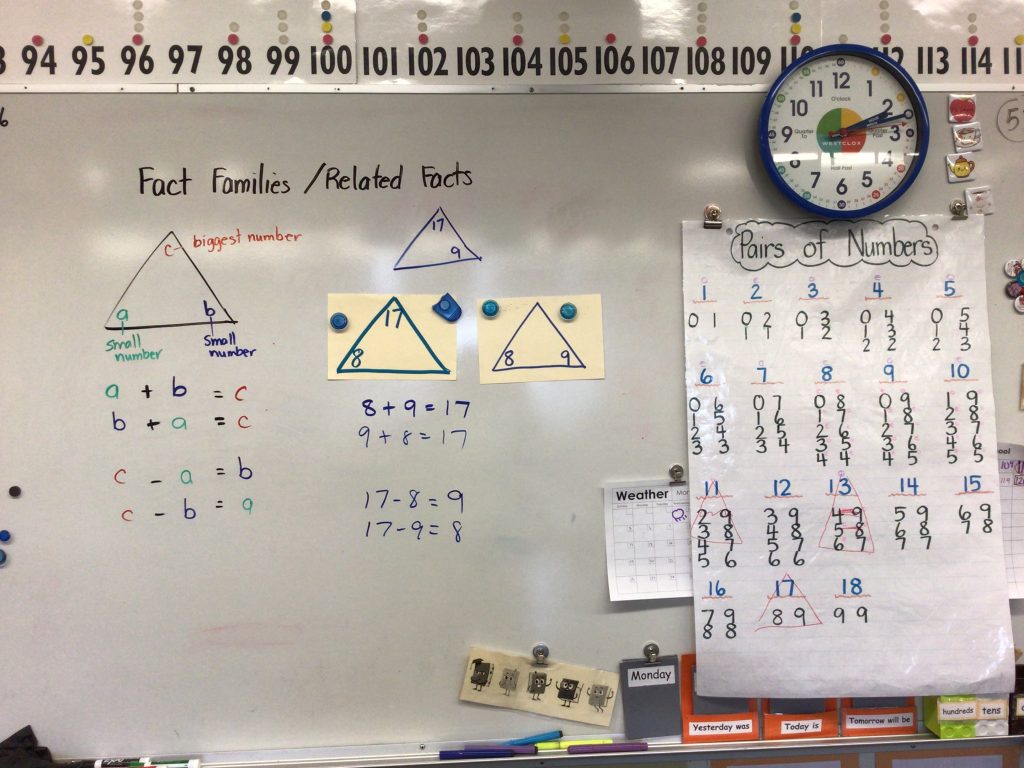 94 95 96 97 98 99 100 101 102 103 104 105 106 107 108 109 113 114
Fact Families / Related Facts
c - biggest number
a
b
small number
small number
a + b = c
b + a = c
c - a = b
c - b = a
17
9
17
8
8 9
8 + 9 = 17
9 + 8 = 17
17 - 8 = 9
17 - 9 = 8
12
O'clock
10
2
Quarter To
9
WESTCLOX
3
8
4
Half Past
7
6
5
5
Pairs of Numbers
1 2 3 4 5
0 1 0 2 0 3 0 4 0 5
1 1 1 2 1 3 1 4
2 2 2 3
6 7 8 9 10
0 6 0 7 0 8 0 9 1 9
1 5 1 6 1 7 1 8 2 8
2 4 2 5 2 6 2 7 3 7
3 3 3 4 3 5 3 6 4 6
4 4 4 5 5 5
11 12 13 14 15
2 9 3 9 4 9 5 9 6 9
3 8 4 8 5 8 6 8 7 8
4 7 5 7 6 7 7 7
5 6 6 6
16 17 18
7 9 8 9 9 9
8 8
Weather
Monday
Yesterday was
Today is
Tomorrow will be
hundreds
tens